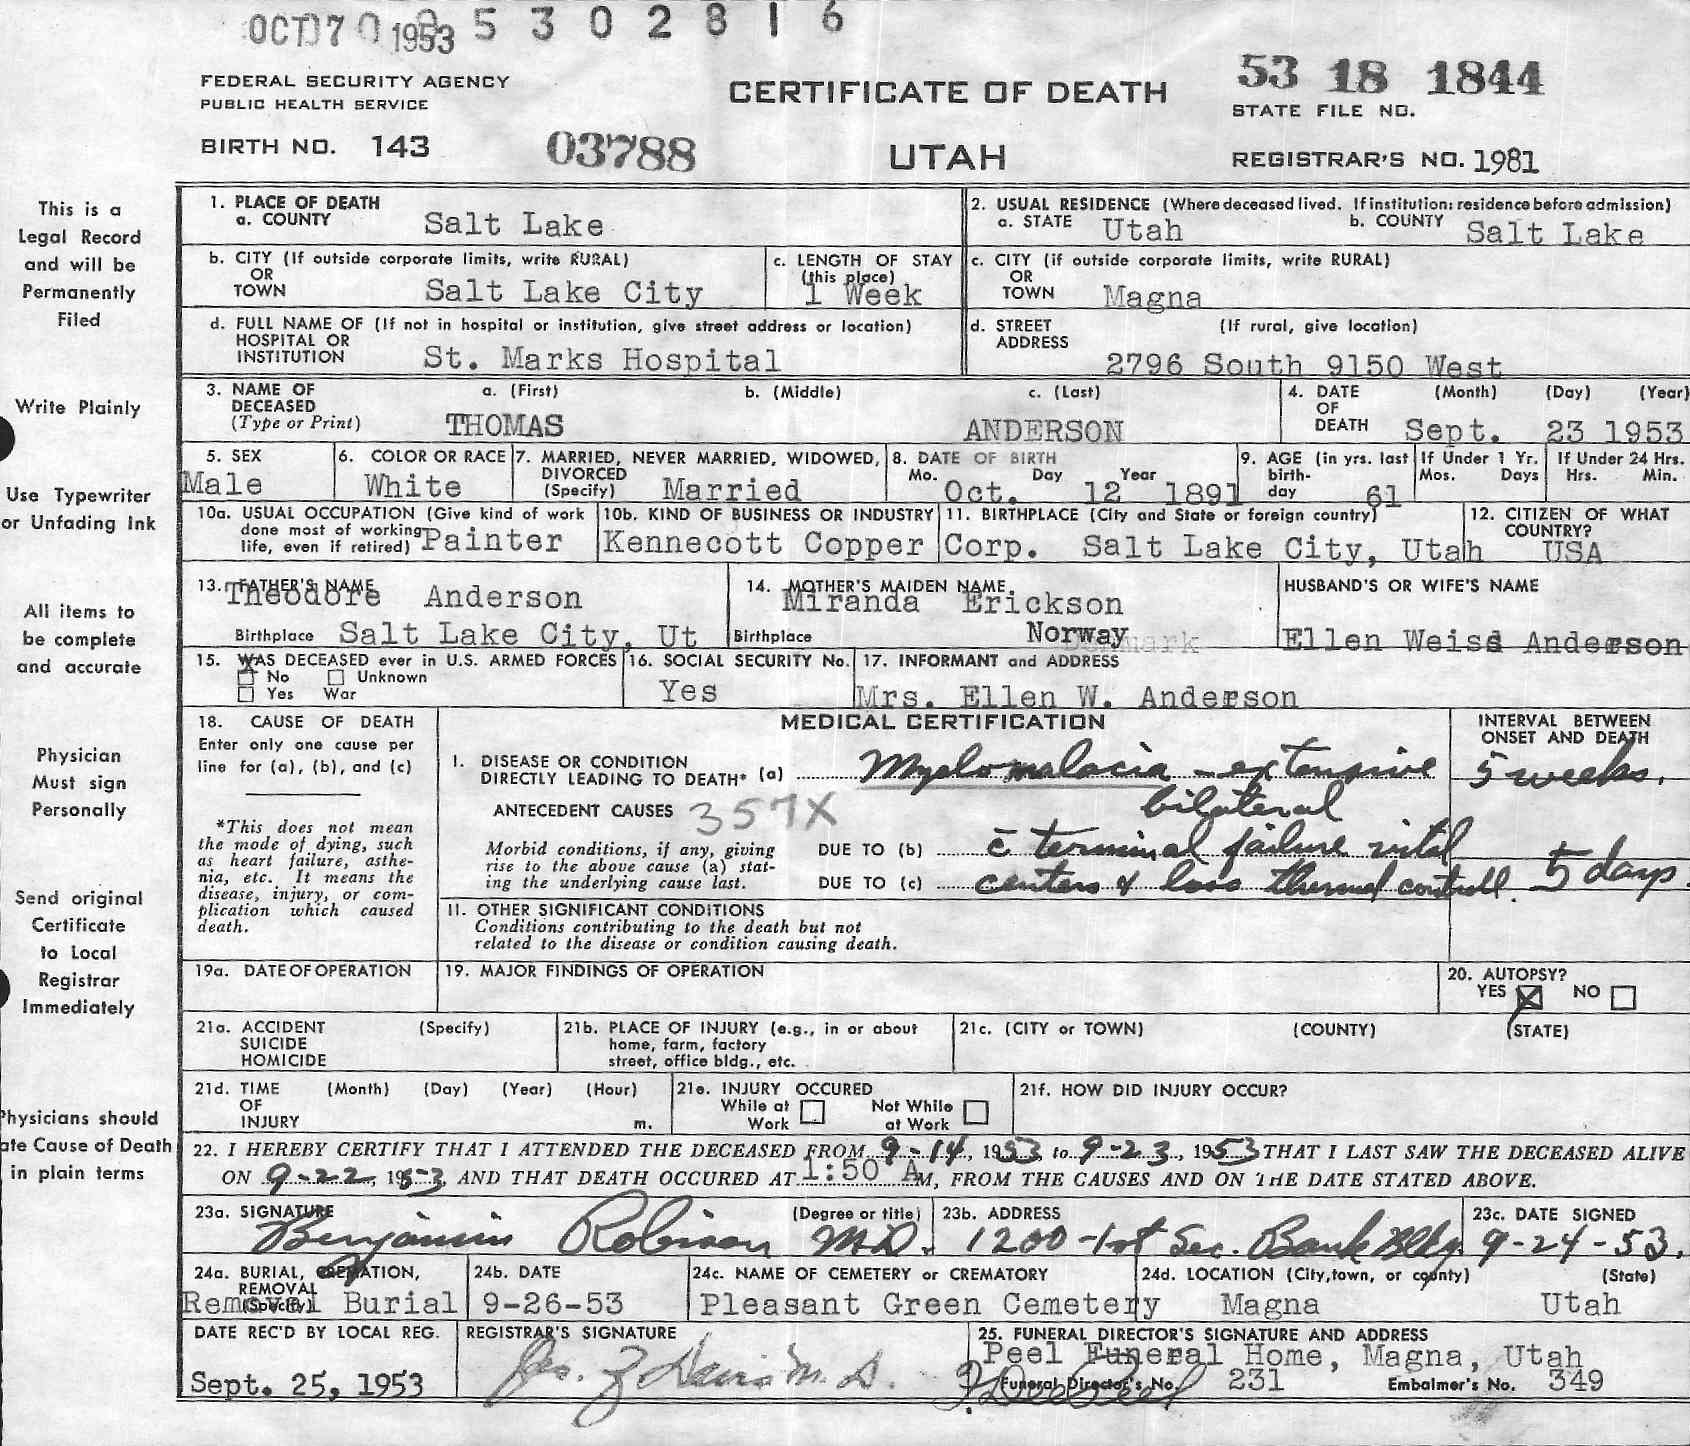 OCT 7 1953 5 3 0 2 8 1 6
FEDERAL SECURITY AGENCY
PUBLIC HEALTH SERVICE
BIRTH NO. 143
03788
CERTIFICATE OF DEATH
UTAH
53 18 1844
STATE FILE NO.
REGISTRAR'S NO. 1981
This is a
Legal Record
and will be
Permanently
Filed
Write Plainly
Use Typewriter
or Unfading Ink
All items to
be complete
and accurate
Physician
Must sign
Personally
Send original
Certificate
to Local
Registrar
Immediately
Physicians should
ate Cause of Death
in plain terms
1. PLACE OF DEATH
a. COUNTY Salt Lake
2. USUAL RESIDENCE (Where deceased lived. If institution: residence before admission)
a. STATE Utah b. COUNTY Salt Lake
b. CITY (If outside corporate limits, write RURAL)
OR
TOWN Salt Lake City
c. LENGTH OF STAY
(this place)
1 Week
c. CITY (if outside corporate limits, write RURAL)
OR
TOWN Magna
d. FULL NAME OF (If not in hospital or institution, give street address or location)
HOSPITAL OR
INSTITUTION St. Marks Hospital
d. STREET (If rural, give location)
ADDRESS
2796 South 9150 West
3. NAME OF a. (First) b. (Middle) c. (Last)
DECEASED
(Type or Print) THOMAS ANDERSON
4. DATE (Month) (Day) (Year)
OF
DEATH Sept. 23 1953
5. SEX
Male
6. COLOR OR RACE
White
7. MARRIED, NEVER MARRIED, WIDOWED,
DIVORCED
(Specify) Married
8. DATE OF BIRTH
Mo. Day Year
Oct. 12 1891
9. AGE (in yrs. last
birth-
day 61
If Under 1 Yr.
Mos. Days
If Under 24 Hrs.
Hrs. Min.
10a. USUAL OCCUPATION (Give kind of work
done most of working
life, even if retired) Painter
10b. KIND OF BUSINESS OR INDUSTRY
Kennecott Copper Corp.
11. BIRTHPLACE (City and State or foreign country)
Salt Lake City, Utah
12. CITIZEN OF WHAT
COUNTRY?
USA
13. FATHER'S NAME
Theodore Anderson
Birthplace Salt Lake City, Ut
14. MOTHER'S MAIDEN NAME
Miranda Erickson
Birthplace Norway
HUSBAND'S OR WIFE'S NAME
Ellen Weiss Anderson
15. WAS DECEASED ever in U.S. ARMED FORCES
No Unknown
Yes War
16. SOCIAL SECURITY No.
Yes
17. INFORMANT and ADDRESS
Mrs. Ellen W. Anderson
18. CAUSE OF DEATH
Enter only one cause per
line for (a), (b), and (c)
*This does not mean
the mode of dying, such
as heart failure, asthe-
nia, etc. It means the
disease, injury, or com-
plication which caused
death.
MEDICAL CERTIFICATION
INTERVAL BETWEEN
ONSET AND DEATH
I. DISEASE OR CONDITION
DIRECTLY LEADING TO DEATH* (a) Myelomalacia - extensive 5 weeks.
bilateral
ANTECEDENT CAUSES 357X
Morbid conditions, if any, giving
rise to the above cause (a) stat-
ing the underlying cause last.
DUE TO (b) c̄ terminal failure vital
DUE TO (c) centers & loss thermal controll. 5 days.
II. OTHER SIGNIFICANT CONDITIONS
Conditions contributing to the death but not
related to the disease or condition causing death.
19a. DATE OF OPERATION
19. MAJOR FINDINGS OF OPERATION
20. AUTOPSY?
YES NO
21a. ACCIDENT (Specify)
SUICIDE
HOMICIDE
21b. PLACE OF INJURY (e.g., in or about
home, farm, factory
street, office bldg., etc.
21c. (CITY or TOWN) (COUNTY) (STATE)
21d. TIME (Month) (Day) (Year) (Hour)
OF
INJURY m.
21e. INJURY OCCURED
While at Not While
Work at Work
21f. HOW DID INJURY OCCUR?
22. I HEREBY CERTIFY THAT I ATTENDED THE DECEASED FROM 9-14, 1953 to 9-23, 1953 THAT I LAST SAW THE DECEASED ALIVE
ON 9-22, 1953 AND THAT DEATH OCCURED AT 1:50 A M, FROM THE CAUSES AND ON THE DATE STATED ABOVE.
23a. SIGNATURE (Degree or title)
Benjamin Robison M.D.
23b. ADDRESS
1200 - 1st Sec. Bank Bldg.
23c. DATE SIGNED
9-24-53.
24a. BURIAL, CREMATION,
REMOVAL
(Specify)
Removal Burial
24b. DATE
9-26-53
24c. NAME OF CEMETERY or CREMATORY
Pleasant Green Cemetery
24d. LOCATION (City, town, or county) (State)
Magna Utah
DATE REC'D BY LOCAL REG.
Sept. 25, 1953
REGISTRAR'S SIGNATURE
Jas. Z Davis M. D.
25. FUNERAL DIRECTOR'S SIGNATURE AND ADDRESS
Peel Funeral Home, Magna, Utah
Funeral Director's No. 231 Embalmer's No. 349